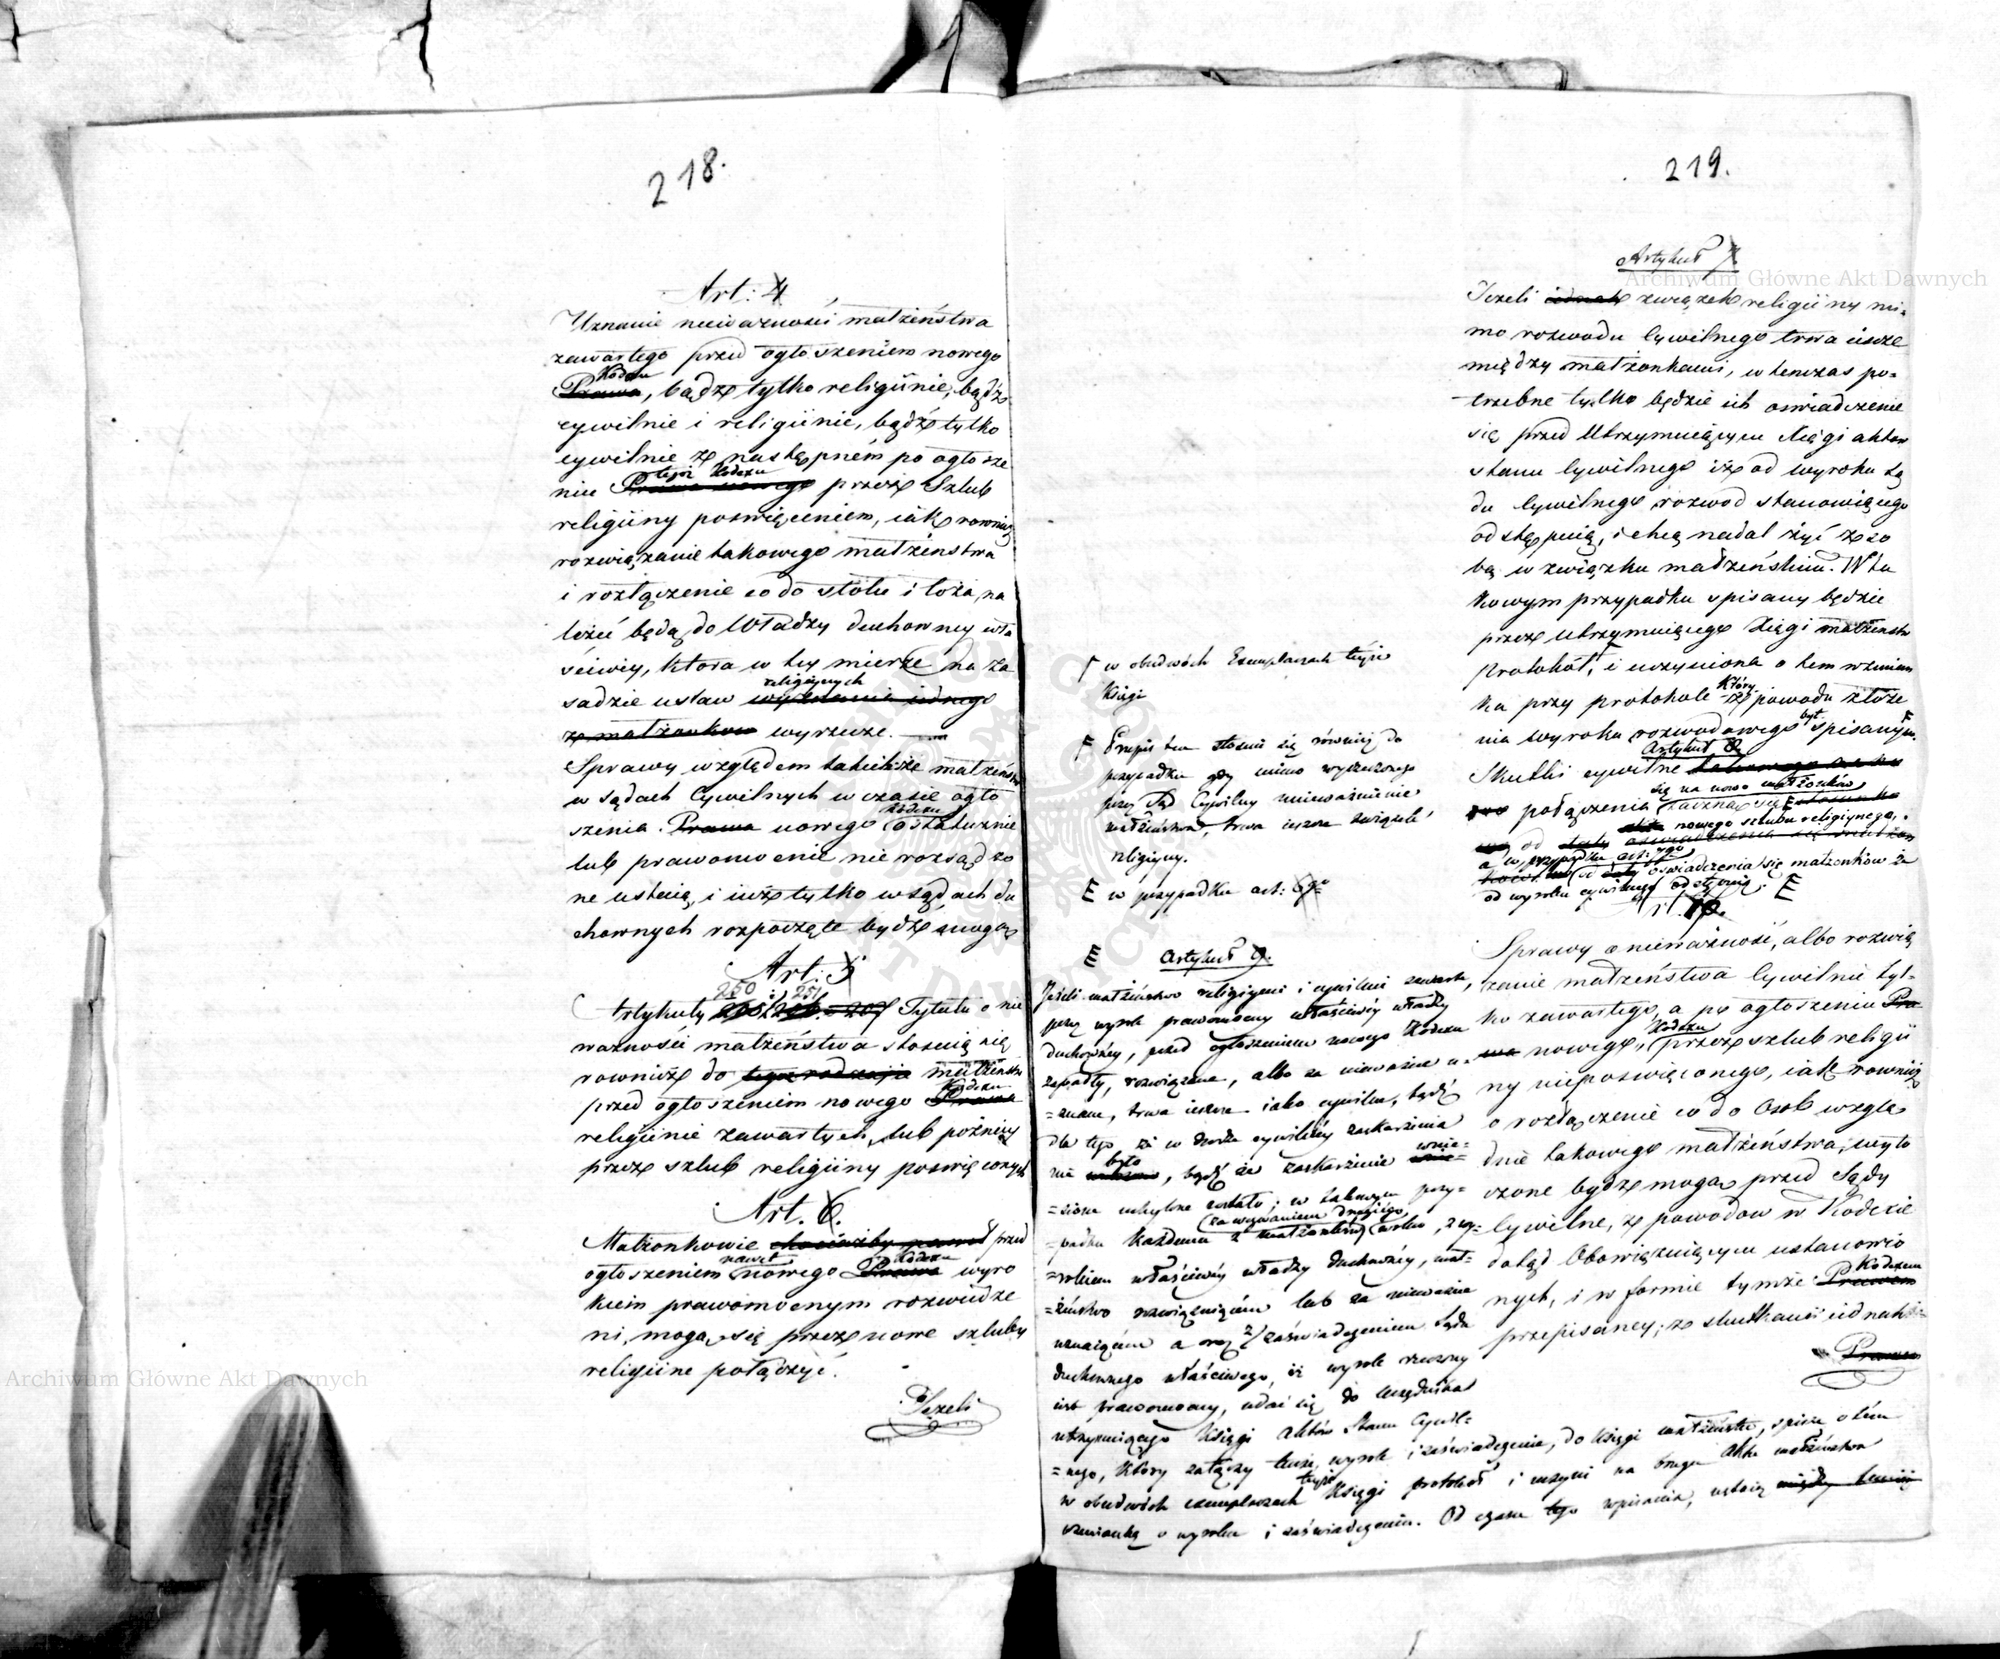 218.
Art: 4
Uznanie nieważności małżeństwa
zawartego przed ogłoszeniem nowego
Kodexu
Prawa, bądź tylko religiinie, bądź
cywilnie i religiinie, bądź tylko
cywilnie z następném po ogłosze
tegoż Kodexu
niu Prawa nowego przez Szlub
religiiny poswięceniem, iako rownież
rozwiązanie takowego małżeństwa
i rozłączenie co do stołu i łoża, na
leżeć będą do Władzy duchowney wła
ściwey, która w tey mierze na za
religiynych
sadzie ustaw wyznania iednego
z małżonkow wyrzecze.
Sprawy względem takichże małżeństw
w sądach Cywilnych w czasie ogło
Kodexu
szenia Prawa nowego ostatecznie
lub prawomocnie nie rozsądzo
ne ustaią, i iuż tylko w sądach du
chownych rozpoczęte bydź mogą
Art: 5
250 i 251
Artykuły Tytułu o nie
ważności małżeństwa stosuią się
rownież do tego rodzaju małżeństw
Kodexu
przed ogłoszeniem nowego Prawa
religiinie zawartych, lub poźniey
przez szlub religiiny poswięconych
Art. 6.
Małżonkowie chociażby przed
nawet Kodexu
ogłoszeniem nowego Prawa wyro
kiem prawomocnym rozwiedze
ni, mogą się przez nowe szluby
religiine połączyć.
Jeżeli
219.
Artykuł 7
Jeżeli iednak związek religiiny mi-
mo rozwodu Cywilnego trwa ieszcze
między małżonkami, w tenczas po-
trzebne tylko będzie ich oswiadczenie
się przed Utrzymuiącym Xięgi aktow
stanu Cywilnego iż od wyroku Są
du Cywilnego rozwod stanowiącego
odstępuią, i chcą nadal żyć z so
bą w związku małżeńskim. W ta
kowym przypadku spisany będzie
przez Utrzymuiącego Xięgi małżeństw
protokół, i uczyniona o tem wzmian
Który
ka przy protokole z powodu złoże
był
nia wyroku rozwodowego spisanym
Artykuł 8
Skutki cywilne
się na nowo małżonków
połączenia zaczną się
nowego szlubu religiynego,
od daty
a w przypadku art: 7go
oświadczenia się małżonków że
od wyroku cywilnego odstępuią. E
Art. 10.
Sprawy o nieważność, albo rozwią
zanie małżeństwa Cywilnie tyl-
ko zawartego, a po ogłoszeniu Pra
Kodexu
wa nowego, przez szlub religii
ny nieposwięconego, iako rownież
o rozłączenie co do Osob wzglę
dnie takowego małżeństwa, wyto
czone bydź mogą przed Sądy
Cywilne, z powodow w Kodexie
dotąd Obowiązuiącym ustanowio
Kodexem
nych, i w formie tymże Prawem
przepisaney; ze skutkami iednak
Prawa
w obudwóch Exemplarzach teyże
Księgi
F Przepis ten stosuie się również do
przypadku gdy mimo wyrzeczonego
przez Sąd Cywilny unieważnienia
małżeństwa, trwa ieszcze związek
religiyny.
E w przypadku art: 6go
E Artykuł 9.
Jeżeli małżeństwo religiynie i cywilnie zawarte,
przez wyrok prawomocny właściwéy władzy
duchownéy, przed ogłoszeniem nowego Kodexu
zapadły, rozwiązane, albo za nieważne u-
=znane, trwa ieszcze iako cywilne, bądź
dla tego, że w drodze cywilnéy zaskarżenia
było wnie=
nie , bądź że zaskarżenie
=sione uchylone zostało; w takowym przy=
(za wezwaniem drugiego)
=padku każdemu z małżonków wolno, z wy=
=rokiem właściwéy władzy duchownéy, mał=
=żeństwo rozwiązuiącym lub za nieważne
uznaiącém a oraz z zaświadczeniem Sądu
duchownego właściwego, iż wyrok rzeczony
iest prawomocny, udać się do Urzędnika
utrzymuiącego Księgi Aktów Stanu Cywil=
=nego, który załączy tenże wyrok i zaświadczenie, do księgi małżeństw, spisze o tém
w obudwóch exemplarzach teyże Księgi protokół i uczyni na brzegu Aktu małżeństwa
wzmiankę o wyroku i zaświadczeniu. Od czasu tego wpisania, ustaią między temiż
Archiwum Główne Akt Dawnych
Archiwum Główne Akt Dawnych